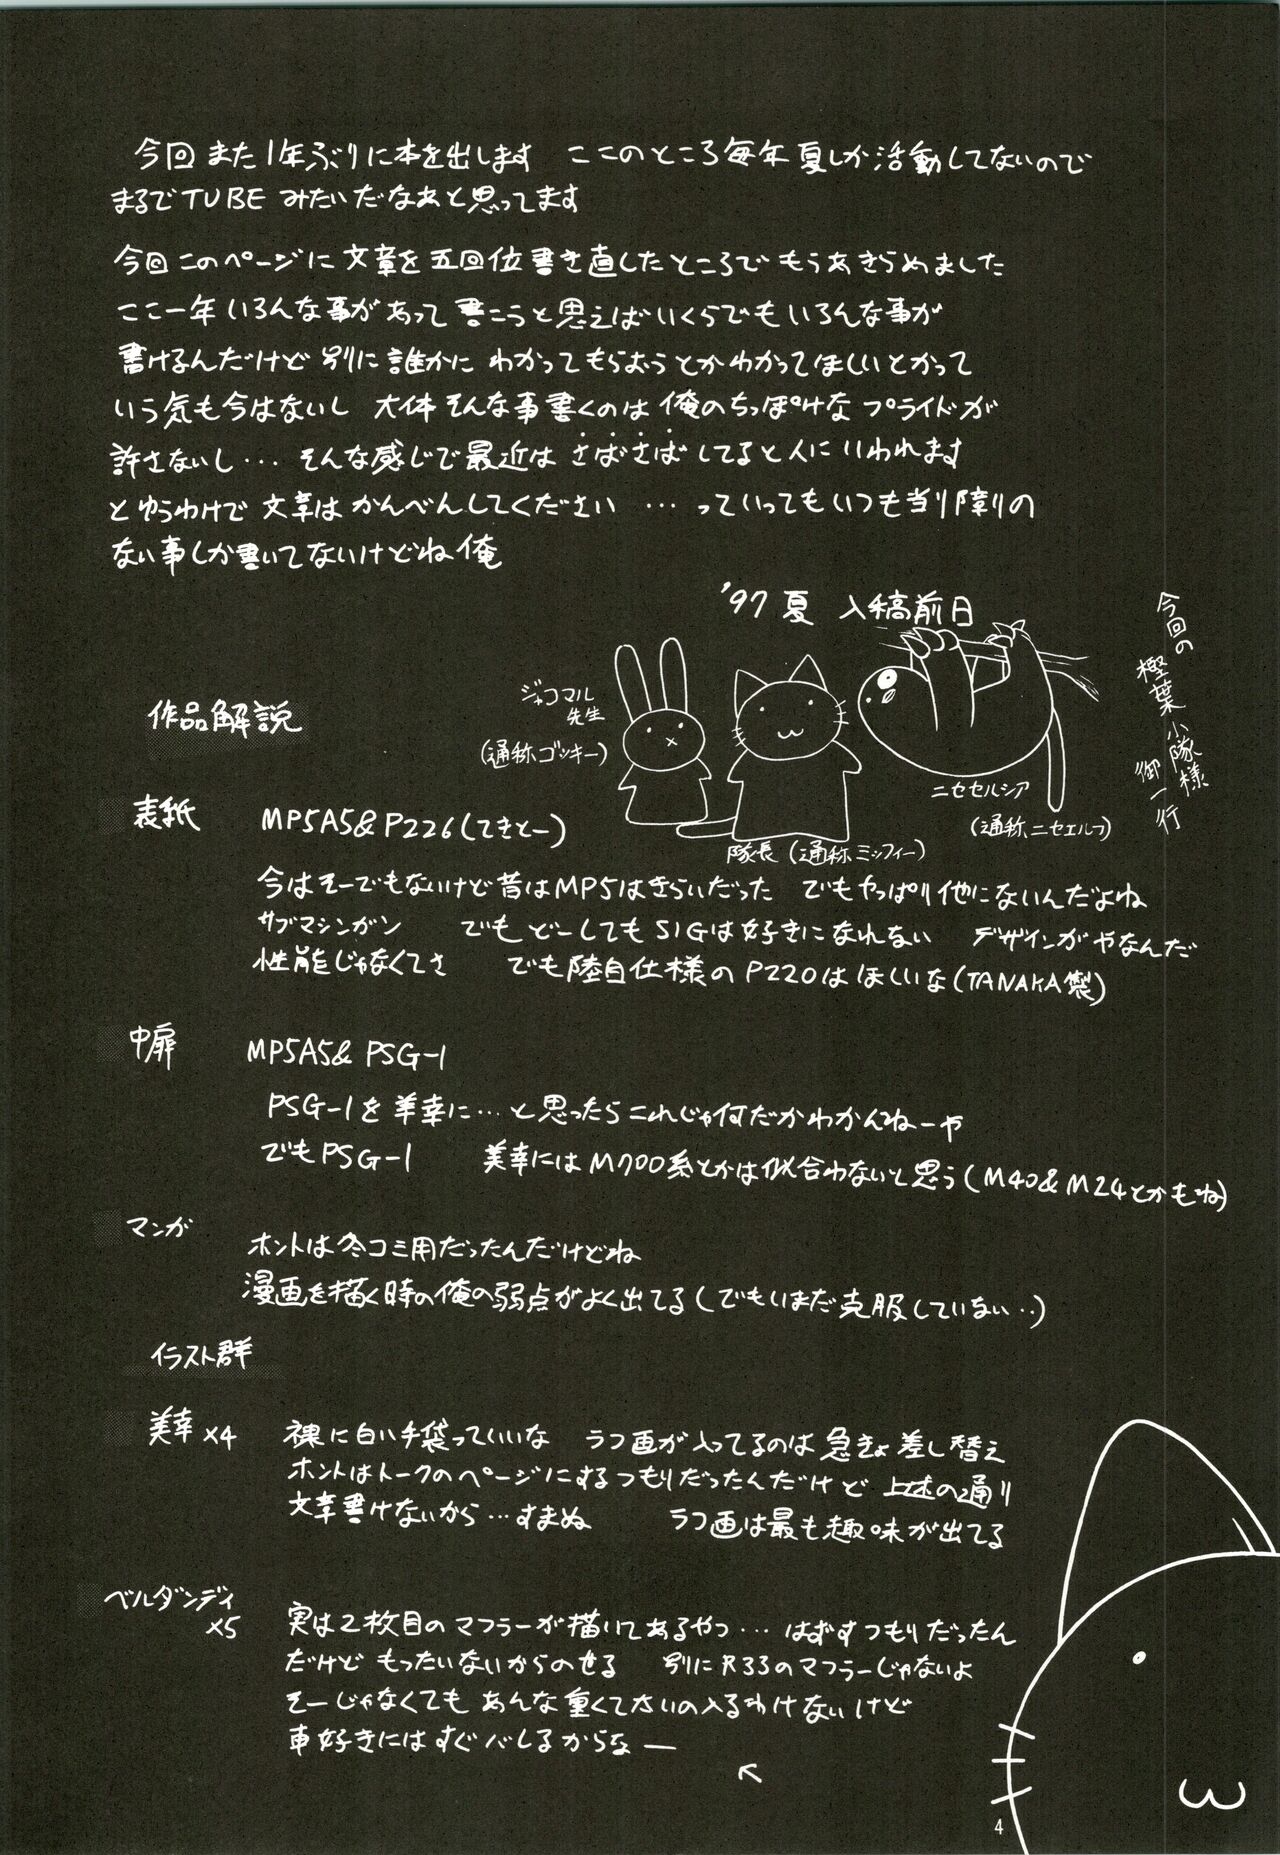 今回また1年ぶりに本を出します ここのところ毎年夏しか活動してないので
まるでTUBEみたいだなあと思ってます
今回このページに文章を五回位書き直したところでもうあきらめました
ここ一年いろんな事があって書こうと思えばいくらでもいろんな事が
書けるんだけど別に誰かにわかってもらおうとかわかってほしいとかって
いう気も今はないし 大体そんな事書くのは俺のちっぽけなプライドが
許さないし… そんな感じで最近はさばさばしてると人にいわれます
とゆうわけで文章はかんべんしてください …っていってもいつも当り障りの
ない事しか書いてないけどね俺
'97夏 入稿前日
今回の
樫葉小隊様
御一行
ジャコマル
先生
(通称ゴッキー)
隊長 (通称ミッフィー)
ニセセルシア
(通称ニセエルフ)
作品解説
表紙 MP5A5&P226(てきとー)
今はそーでもないけど昔はMP5はきらいだった でもやっぱり他にないんだよね
サブマシンガン でもどーしてもSIGは好きになれない デザインがやなんだ
性能じゃなくてさ でも陸自仕様のP220はほしいな(TANAKA製)
中扉 MP5A5&PSG-1
PSG-1を美幸に…と思ったらこれじゃ何だかわかんねーや
でもPSG-1 美幸にはM700系とかは似合わないと思う(M40&M24とかもね)
マンガ ホントは冬コミ用だったんだけどね
漫画を描く時の俺の弱点がよく出てる(でもいまだ克服していない‥)
イラスト群
美幸×4 裸に白い手袋っていいな ラフ画が入ってるのは急きょ差し替え
ホントはトークのページにするつもりだったんだけど 上述の通り
文章書けないから…すまぬ ラフ画は最も趣味が出てる
ベルダンディ
×5 実は2枚目のマフラーが描いてあるやつ… はずすつもりだったん
だけど もったいないからのせる 別にR33のマフラーじゃないよ
そーじゃなくても あんな重くてでかいの入るわけないけど
車好きにはすぐバレるからなー
4